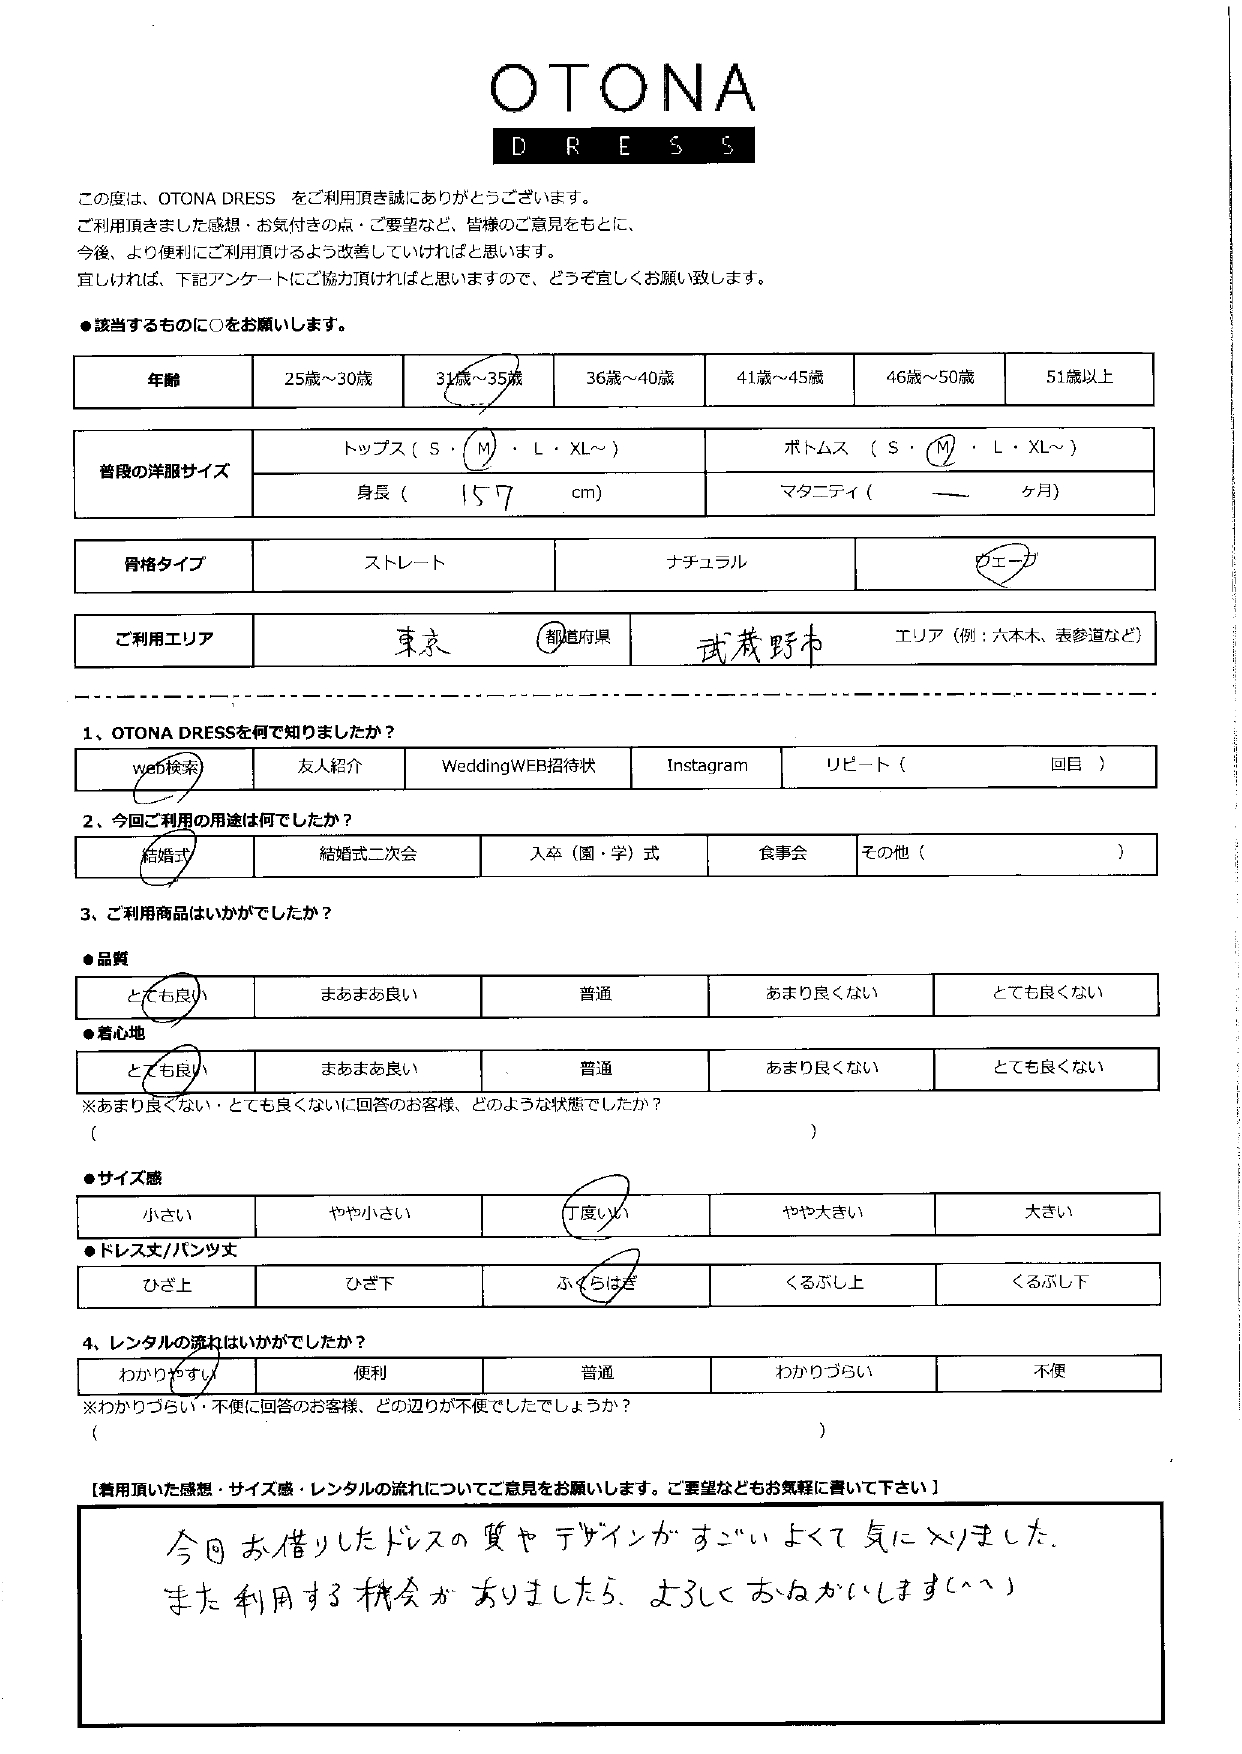 OTONA
DRESS
この度は、OTONA DRESS をご利用頂き誠にありがとうございます。
ご利用頂きました感想・お気付きの点・ご要望など、皆様のご意見をもとに、
今後、より便利にご利用頂けるよう改善していければと思います。
宜しければ、下記アンケートにご協力頂ければと思いますので、どうぞ宜しくお願い致します。
●該当するものに○をお願いします。
年齢 25歳～30歳 31歳～35歳 36歳～40歳 41歳～45歳 46歳～50歳 51歳以上
普段の洋服サイズ トップス ( S ・ M ・ L ・ XL～ ) ボトムス ( S ・ M ・ L ・ XL～ )
身長 ( 157 cm) マタニティ ( — ケ月)
骨格タイプ ストレート ナチュラル ウェーブ
ご利用エリア 東京 都道府県 武蔵野市 エリア（例：六本木、表参道など）
1、OTONA DRESSを何で知りましたか？
web検索 友人紹介 WeddingWEB招待状 Instagram リピート ( 回目 )
2、今回ご利用の用途は何でしたか？
結婚式 結婚式二次会 入卒（園・学）式 食事会 その他 ( )
3、ご利用商品はいかがでしたか？
●品質
とても良い まあまあ良い 普通 あまり良くない とても良くない
●着心地
とても良い まあまあ良い 普通 あまり良くない とても良くない
※あまり良くない・とても良くないに回答のお客様、どのような状態でしたか？
( )
●サイズ感
小さい やや小さい 丁度いい やや大きい 大きい
●ドレス丈/パンツ丈
ひざ上 ひざ下 ふくらはぎ くるぶし上 くるぶし下
4、レンタルの流れはいかがでしたか？
わかりやすい 便利 普通 わかりづらい 不便
※わかりづらい・不便に回答のお客様、どの辺りが不便でしたでしょうか？
( )
【着用頂いた感想・サイズ感・レンタルの流れについてご意見をお願いします。ご要望などもお気軽に書いて下さい】
今回お借りしたドレスの質やデザインがすごいよくて気に入りました.
また利用する機会がありましたら、よろしくおねがいします(^^)